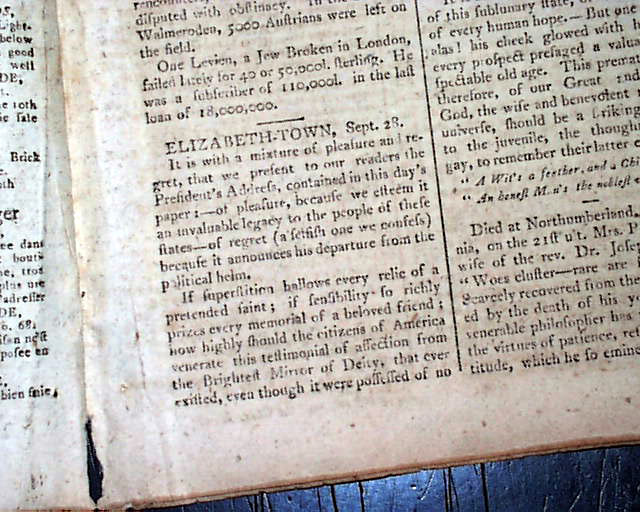 05,
Light.
below
good
well
DE,
he 10th
Brick
ger
DE,
o. 68,
bien fnie,
rencounters,
disputed with obſtinacy.
Walmeroden, 5000 Auſtrians were left on
the field.
One Levien, a Jew Broken in London,
failed lately for 40 or 50,000l. ſterling. He
was a ſubſcriber of 110,000l. in the laſt
loan of 18,000,000.
ELIZABETH-TOWN, Sept. 28.
It is with a mixture of pleaſure and re-
gret, that we preſent to our readers the
Preſident's Addreſs, contained in this day's
paper:—of pleaſure, becauſe we eſteem it
an unvaluable legacy to the people of theſe
ſtates—of regret (a ſelfiſh one we confeſs)
becauſe it announces his departure from the
political helm.
If ſuperſtition hallows every relic of a
pretended ſaint; if ſenſibility ſo richly
prizes every memorial of a beloved friend;
how highly ſhould the citizens of America
venerate this teſtimonial of affection from
the Brighteſt Mirror of Deity, that ever
exiſted, even though it were poſſeſſed of no
of this ſublunary ſtate,
of every human hope.—But one
alas! his cheek glowed with
every proſpect preſaged a
ſpectable old age. This
therefore, of our Great
God, the wiſe and benevolent
univerſe, ſhould be a ſtriking
to the juvenile, the
gay, to remember their latter
"A Wit's a feather, and a
"An honeſt Man's the nobleſt
Died at Northumberland,
nia, on the 21ſt ult. Mrs. P
wife of the rev. Dr. Joſe
"Woes cluſter—rare are
Scarcely recovered from the
ed by the death of his
venerable philoſopher has
the virtues of patience,
titude, which he ſo